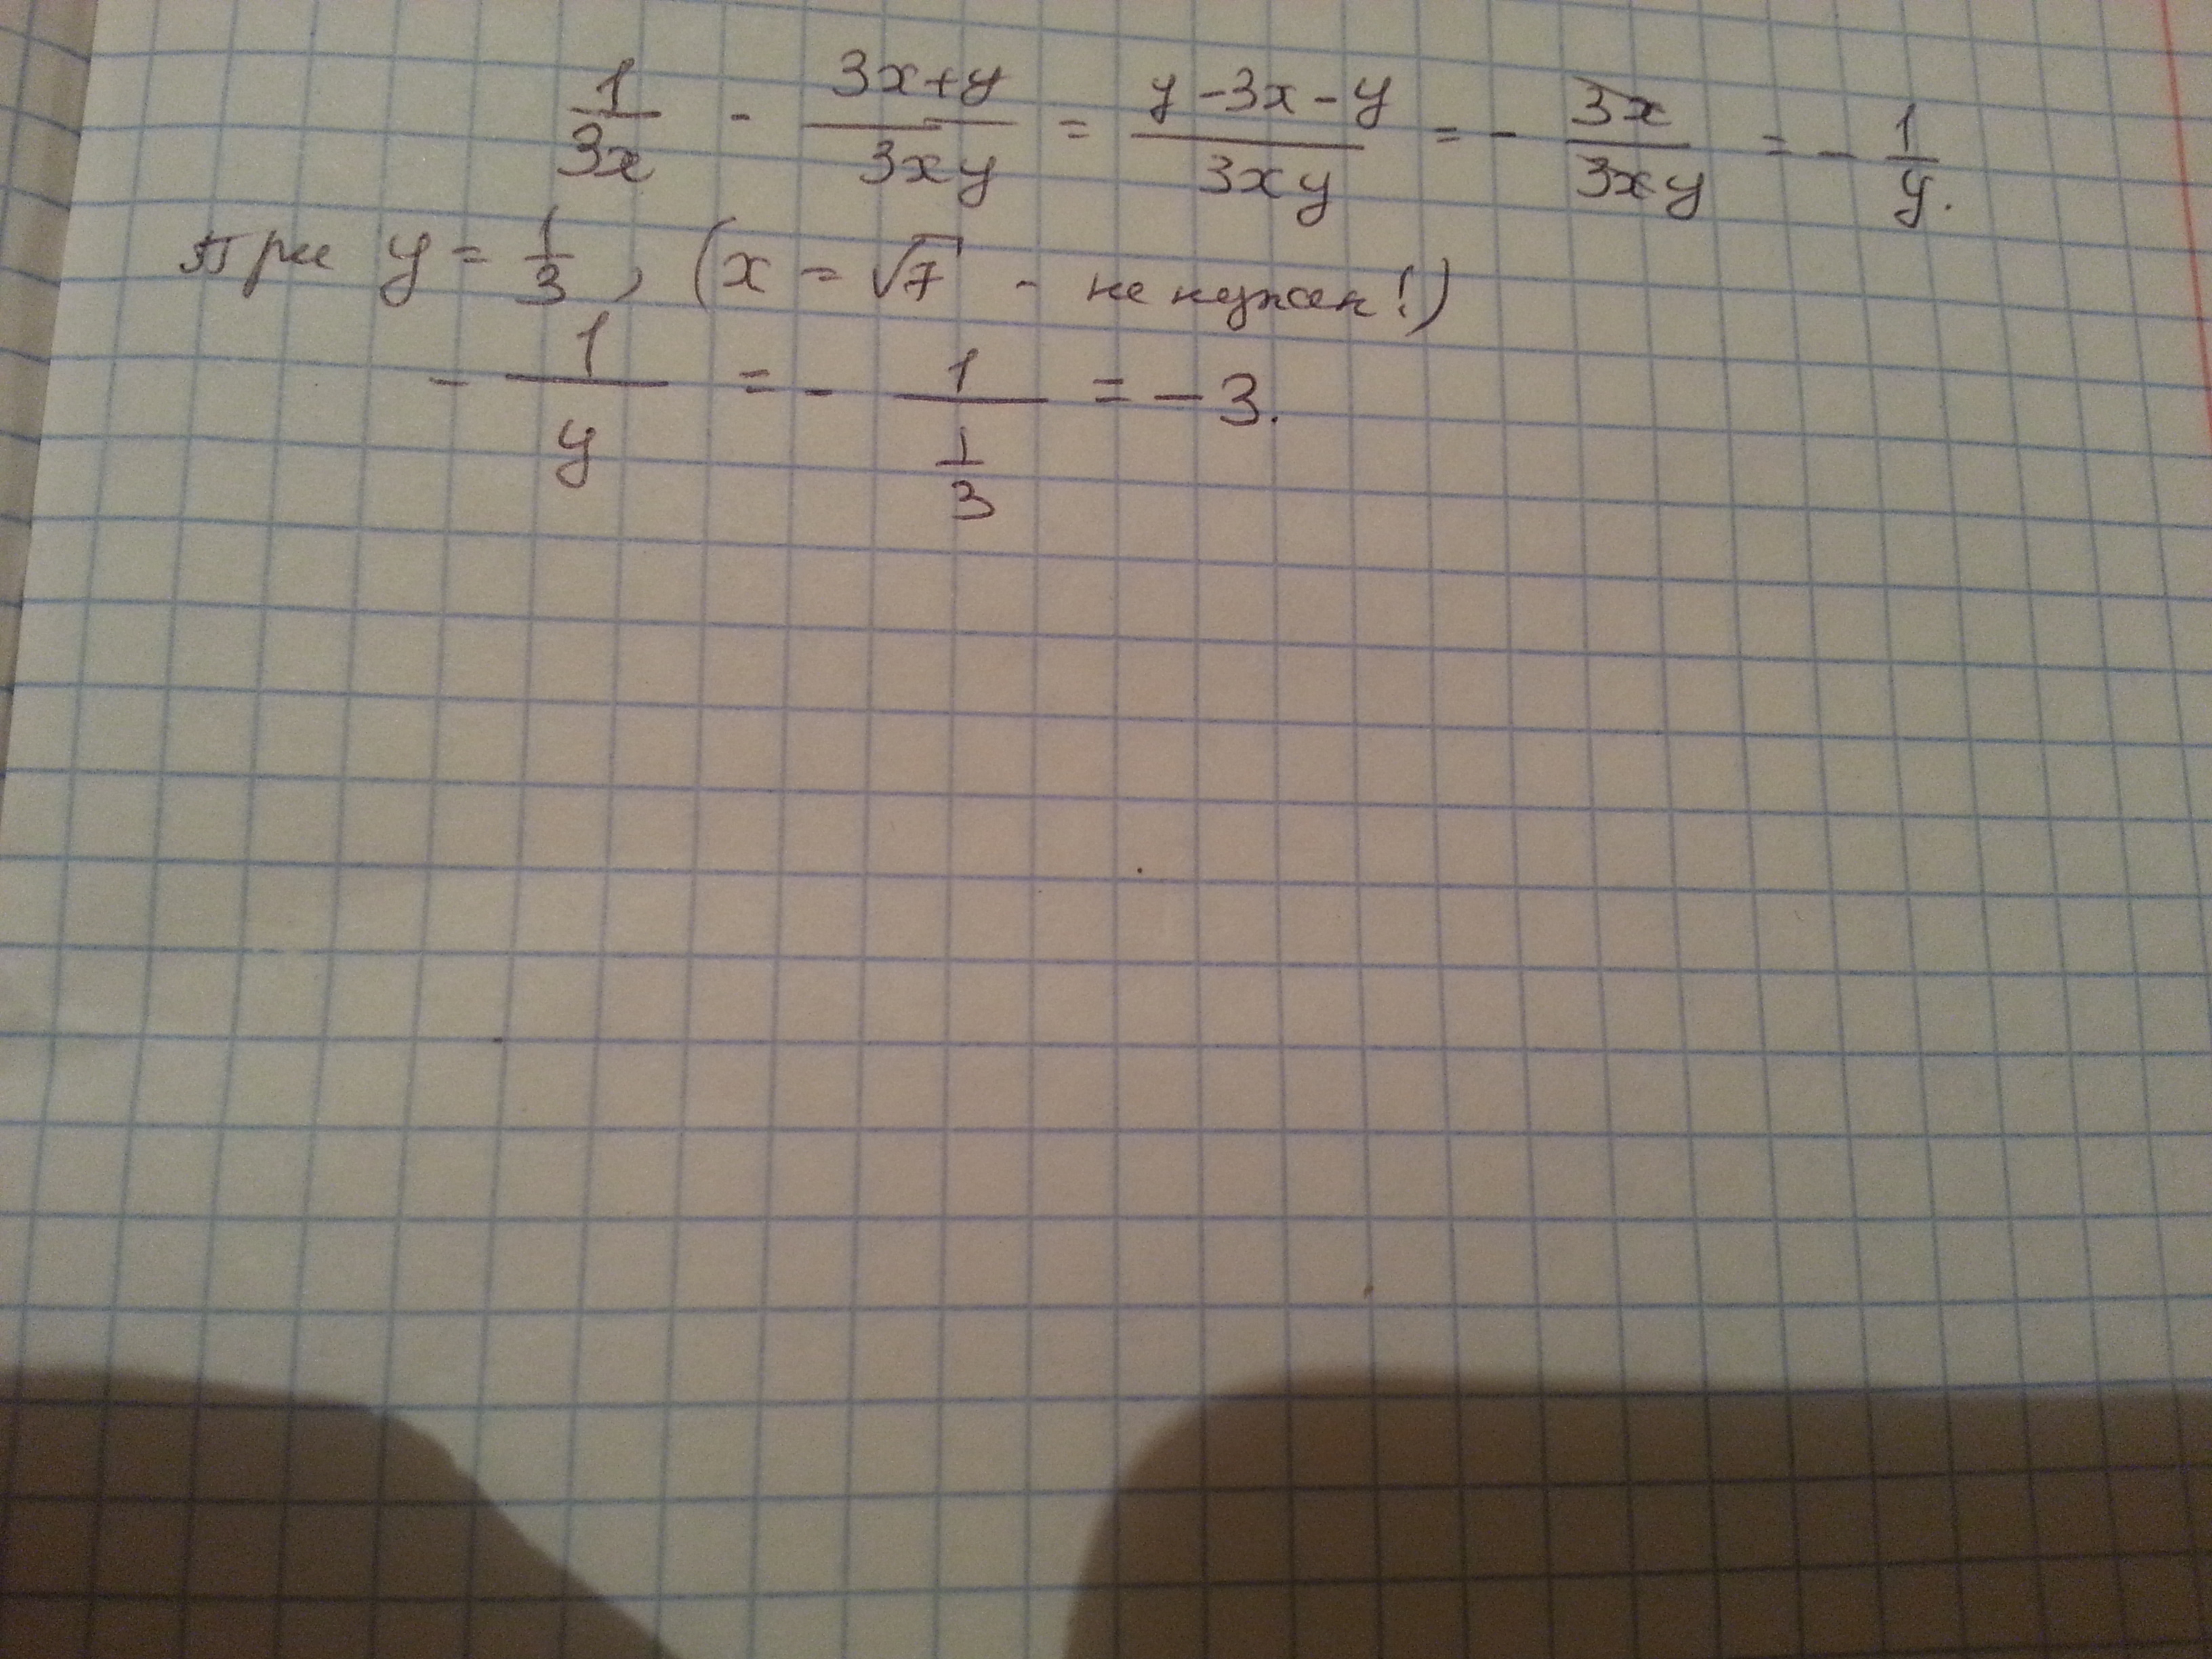 1/3x - 3x+y/3xy = y-3x-y/3xy = - 3x/3xy = - 1/y.
При y = 1/3, (x = √7 - не нужен!)
- 1/y = - 1/(1/3) = - 3.